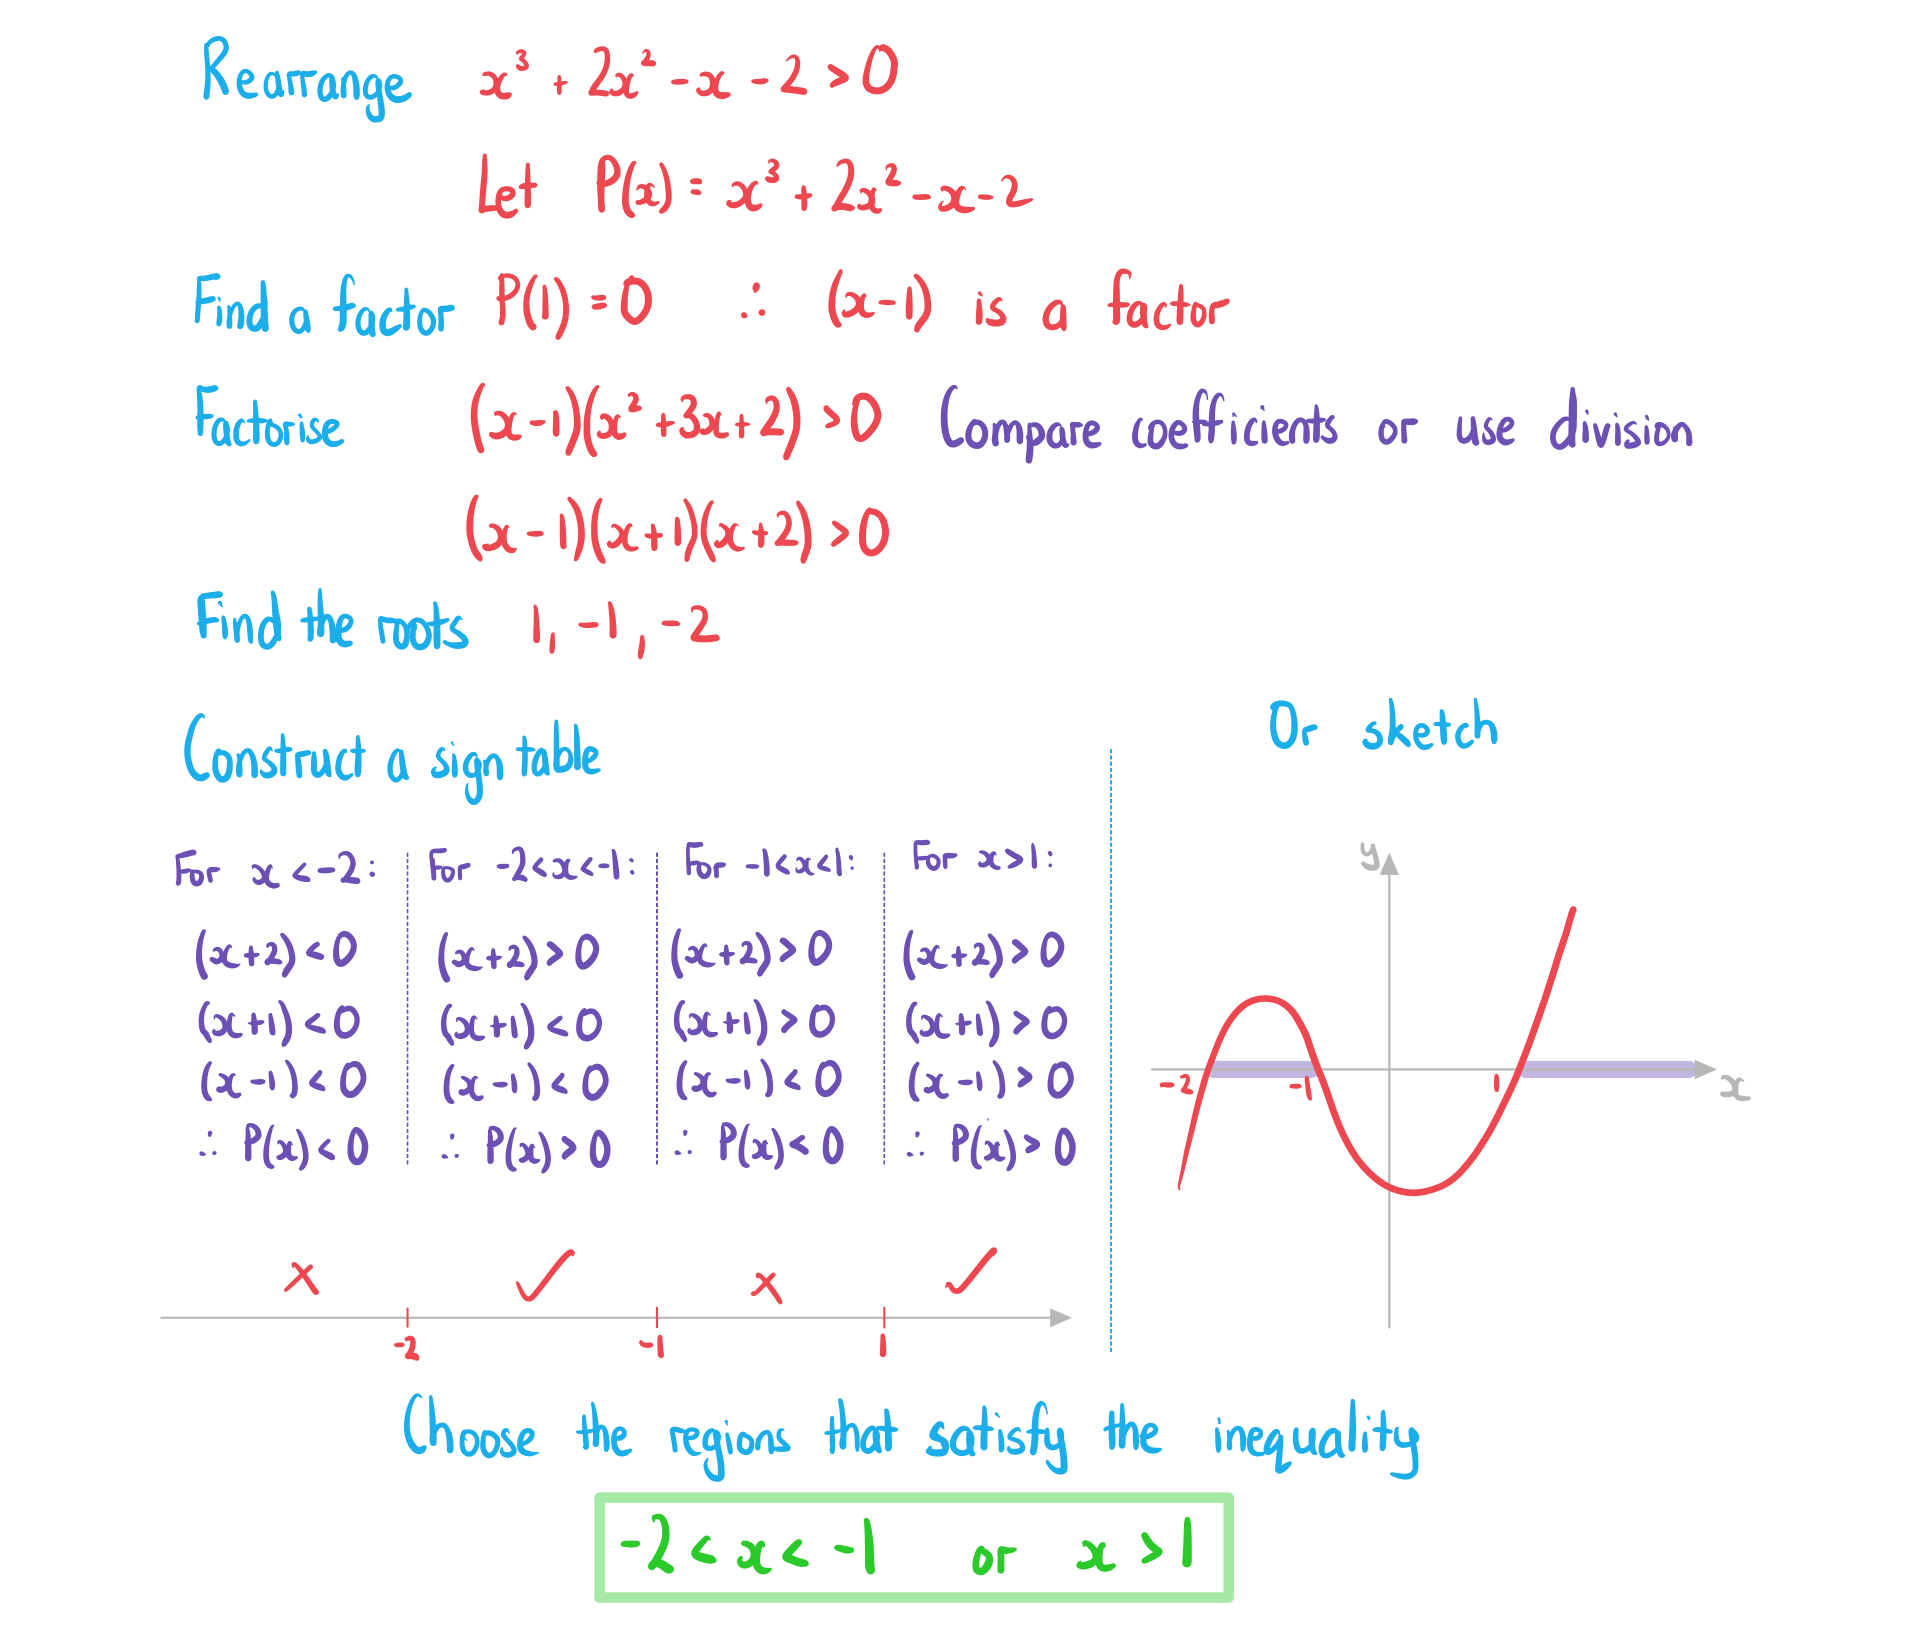 Rearrange x³ + 2x² - x - 2 > 0
Let P(x) = x³ + 2x² - x - 2
Find a factor P(1) = 0 ∴ (x-1) is a factor
Factorise (x-1)(x² + 3x + 2) > 0 Compare coefficients or use division
(x-1)(x+1)(x+2) > 0
Find the roots 1, -1, -2
Construct a sign table
For x < -2: For -2 < x < -1: For -1 < x < 1: For x > 1:
(x+2) < 0 (x+2) > 0 (x+2) > 0 (x+2) > 0
(x+1) < 0 (x+1) < 0 (x+1) > 0 (x+1) > 0
(x-1) < 0 (x-1) < 0 (x-1) < 0 (x-1) > 0
∴ P(x) < 0 ∴ P(x) > 0 ∴ P(x) < 0 ∴ P(x) > 0
x ✓ x ✓
-2 -1 1
Or sketch
y
-2 -1 1 x
Choose the regions that satisfy the inequality
-2 < x < -1 or x > 1